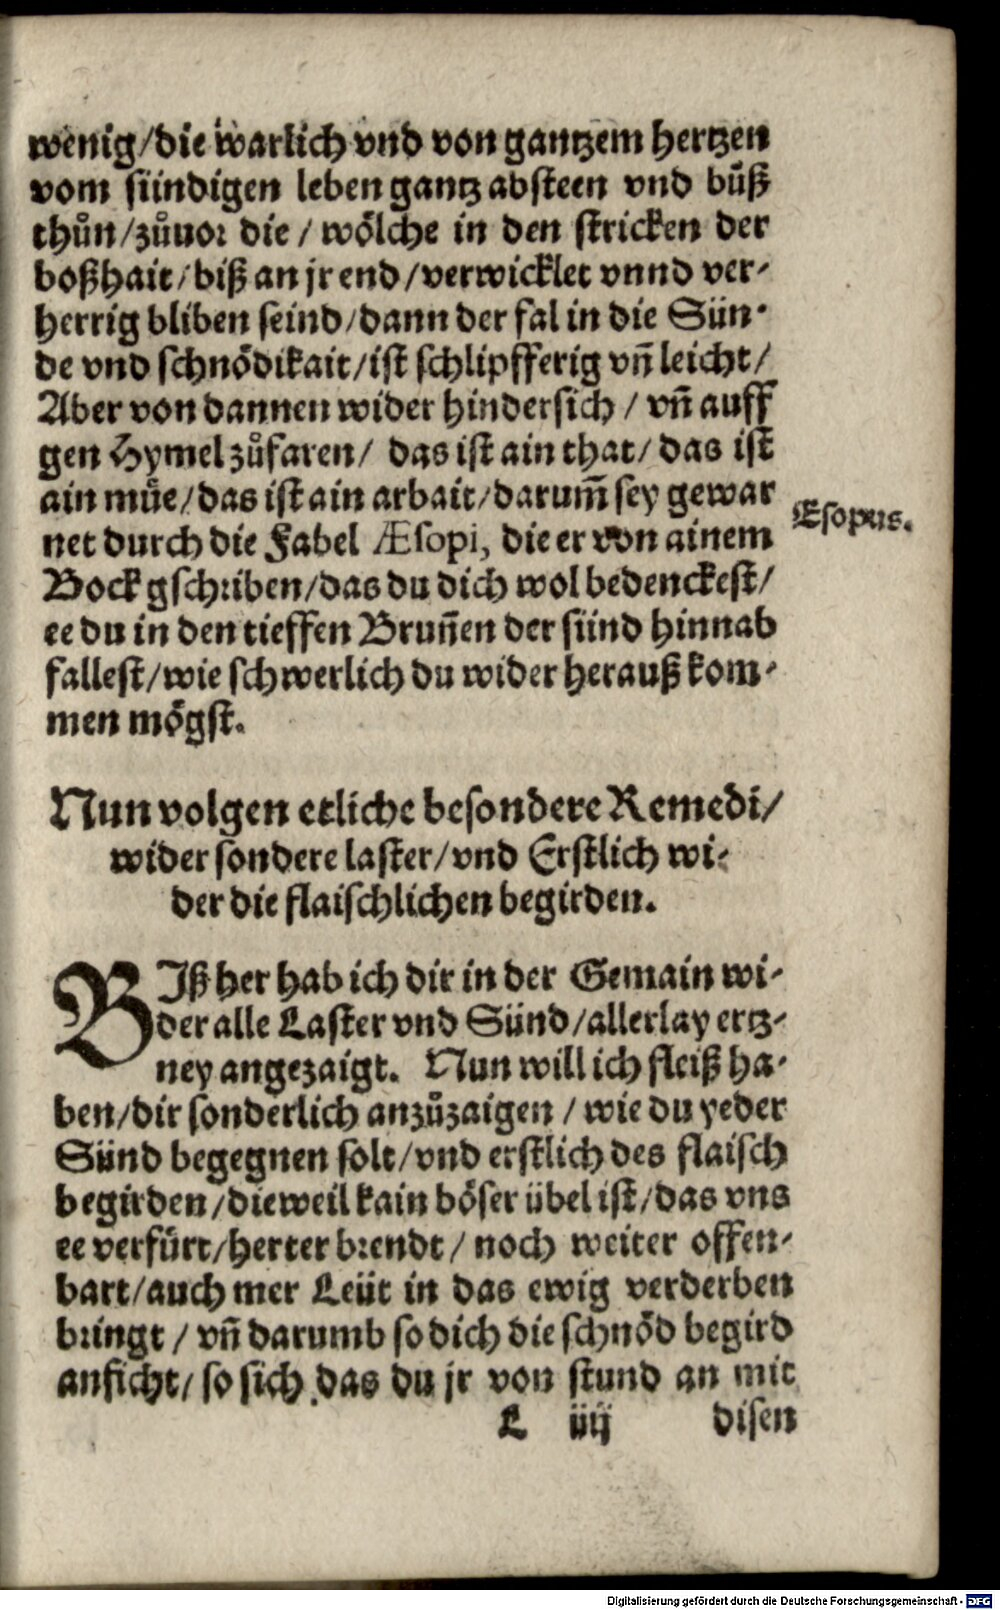 wenig/die warlich vnd von gantzem hertzen
vom sündigen leben gantz absteen vnd bůß
thůn/zůuor die/ wölche in den stricken der
boßhait/biß an jr end/verwicklet vnnd ver-
herrig bliben seind/dann der fal in die Sün-
de vnd schnödikait/ist schlipfferig vñ leicht/
Aber von dannen wider hindersich/ vñ auff
gen Hymel zůfaren/ das ist ain that/ das ist
ain müe/das ist ain arbait/darum̃ sey gewar
Æsopus.
net durch die Fabel Æsopi, die er von ainem
Bock gschriben/das du dich wol bedenckest/
ee du in den tieffen Brun̄en der sünd hinnab
fallest/wie schwerlich du wider herauß kom-
men mögst.
Nun volgen etliche besondere Remedi/
wider sondere laster/vnd Erstlich wi-
der die flaischlichen begirden.
BIß her hab ich dir in der Gemain wi-
der alle Laster vnd Sünd/allerlay ertz-
ney angezaigt. Nun will ich fleiß ha-
ben/dir sonderlich anzůzaigen/ wie du yeder
Sünd begegnen solt/vnd erstlich des flaisch
begirden/dieweil kain böser übel ist/das vns
ee verfürt/herter brendt/ noch weiter offen-
bart/auch mer Leüt in das ewig verderben
bringt/ vñ darumb so dich die schnöd begird
anficht/ so sich das du jr von stund an mit
L iiij disen
Digitalisierung gefördert durch die Deutsche Forschungsgemeinschaft - DFG